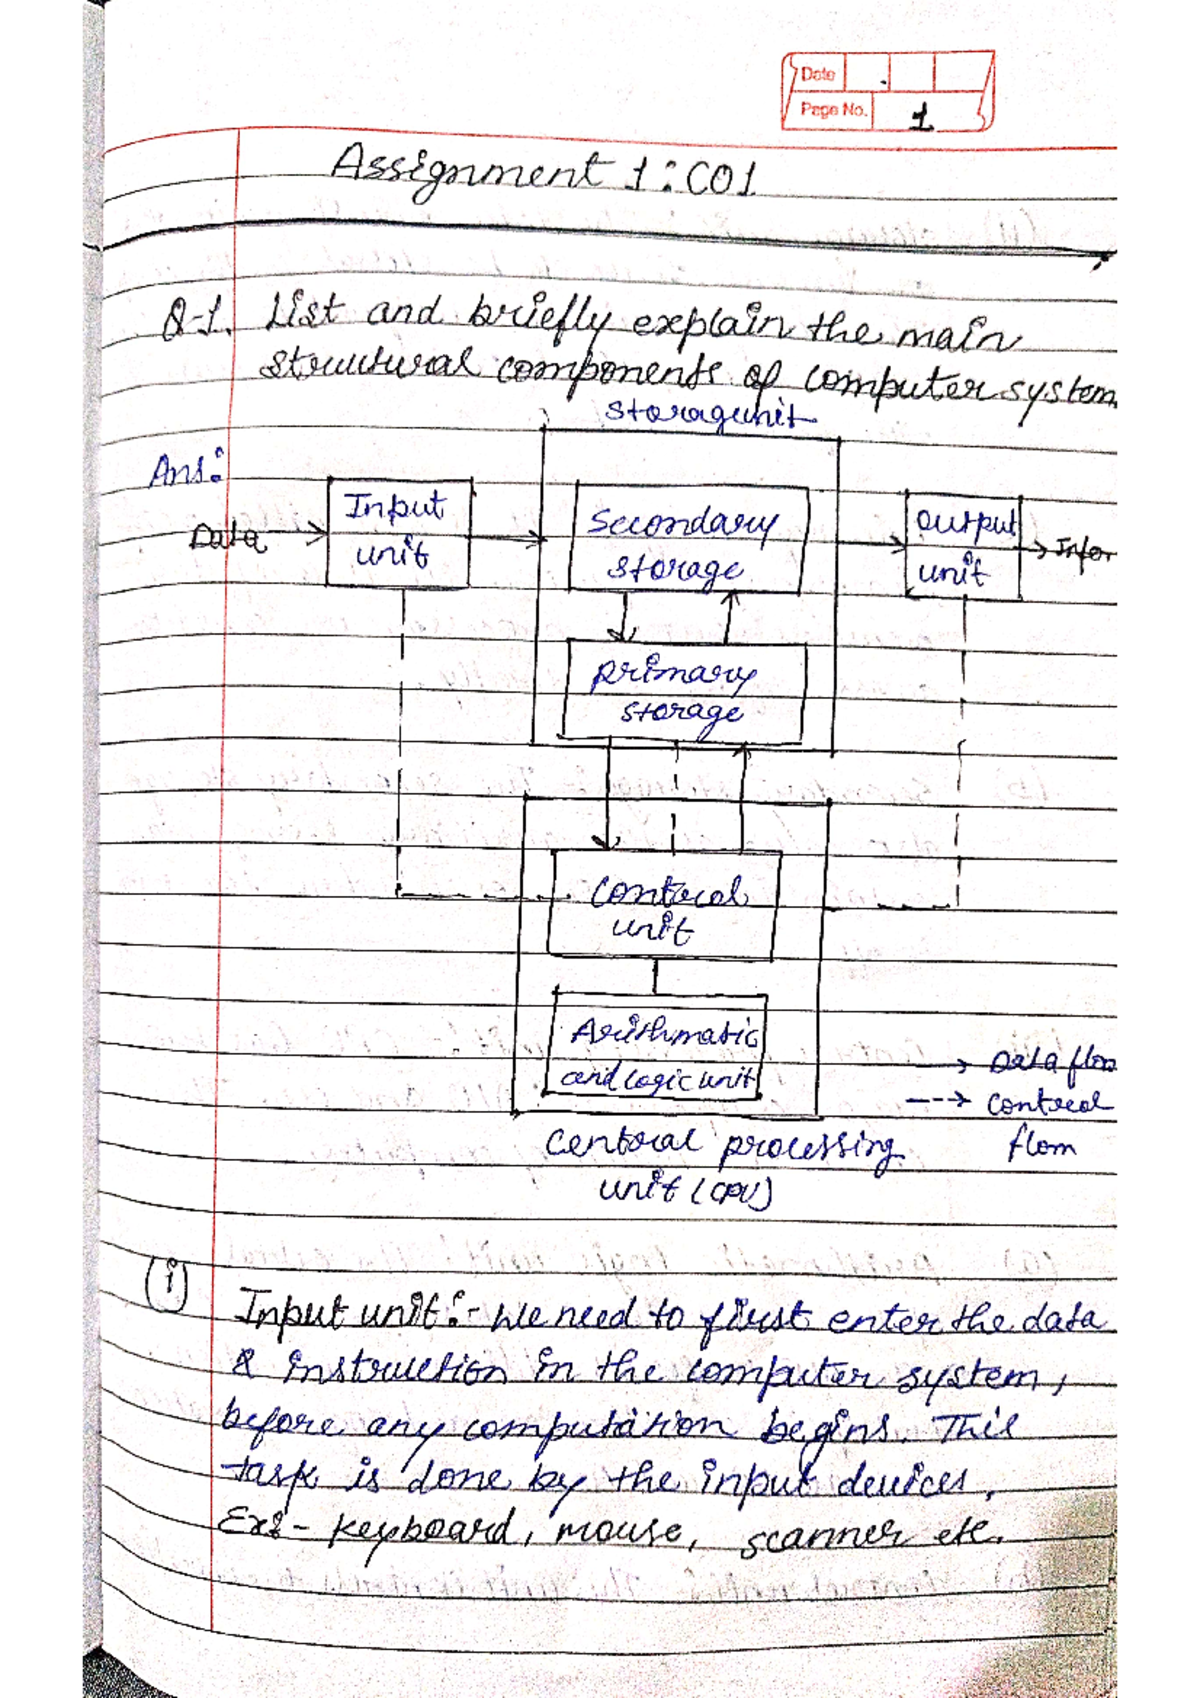 Date
Page No. 1
Assignment 1: CO1
Q-1. List and briefly explain the main
structural components of computer system.
Storag unit
Ans:
Data
Input
unit
Secondary
storage
output
unit
Infor
primary
storage
Control
unit
Arithmatic
and logic unit
Data flow
Control
flow
Central processing
unit (CPU)
(i)
Input unit:- We need to first enter the data
& instruction in the computer system,
before any computation begins. This
task is done by the input devices.
Ex:- keyboard, mouse, scanner etc.